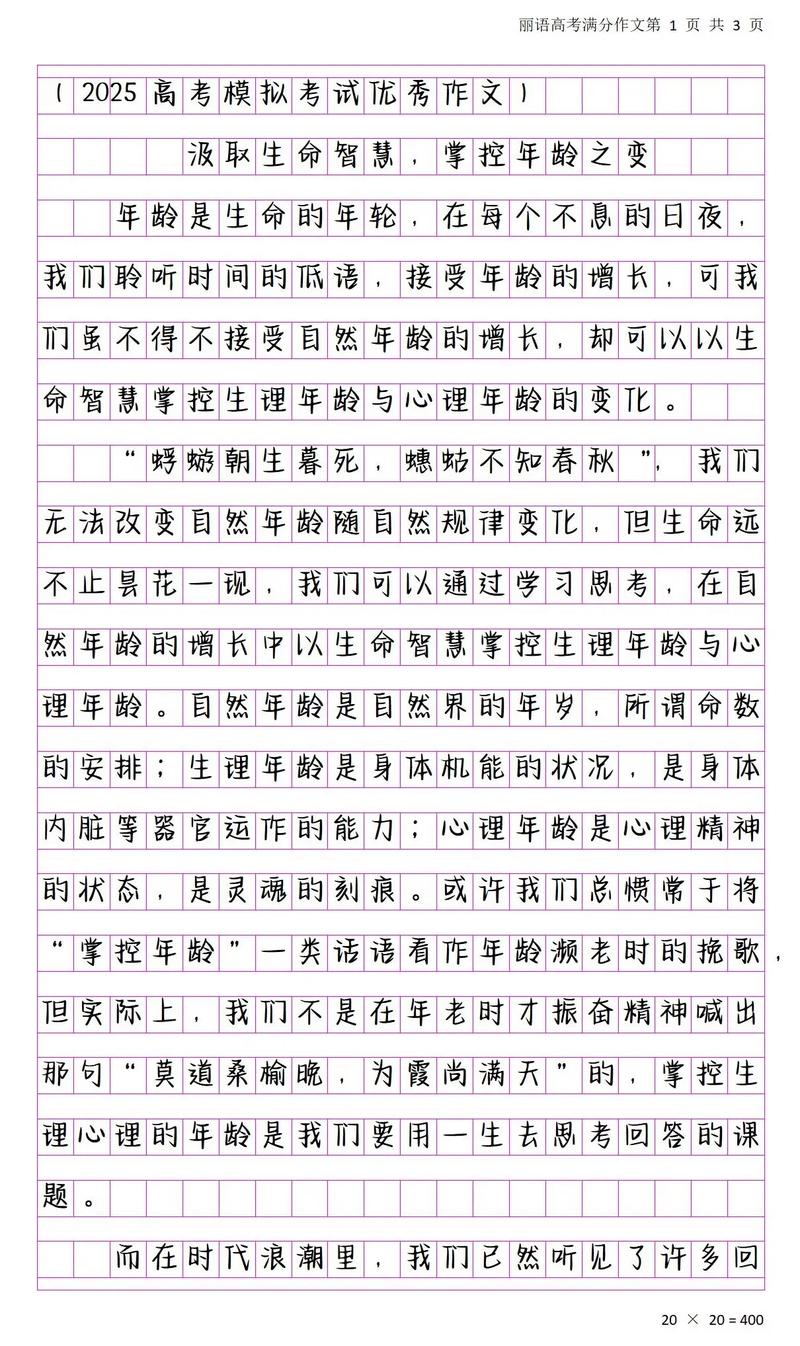 丽语高考满分作文第 1 页 共 3 页
（2025高考模拟考试优秀作文）
汲取生命智慧，掌控年龄之变
年龄是生命的年轮，在每个不息的日夜，
我们聆听时间的低语，接受年龄的增长，可我
们虽不得不接受自然年龄的增长，却可以以生
命智慧掌控生理年龄与心理年龄的变化。
“蜉蝣朝生暮死，蟪蛄不知春秋”，我们
无法改变自然年龄随自然规律变化，但生命远
不止昙花一现，我们可以通过学习思考，在自
然年龄的增长中以生命智慧掌控生理年龄与心
理年龄。自然年龄是自然界的年岁，所谓命数
的安排；生理年龄是身体机能的状况，是身体
内脏等器官运作的能力；心理年龄是心理精神
的状态，是灵魂的刻痕。或许我们总惯常于将
“掌控年龄”一类话语看作年龄濒老时的挽歌，
但实际上，我们不是在年老时才振奋精神喊出
那句“莫道桑榆晚，为霞尚满天”的，掌控生
理心理的年龄是我们要用一生去思考回答的课
题。
而在时代浪潮里，我们已然听见了许多回
20 × 20 = 400